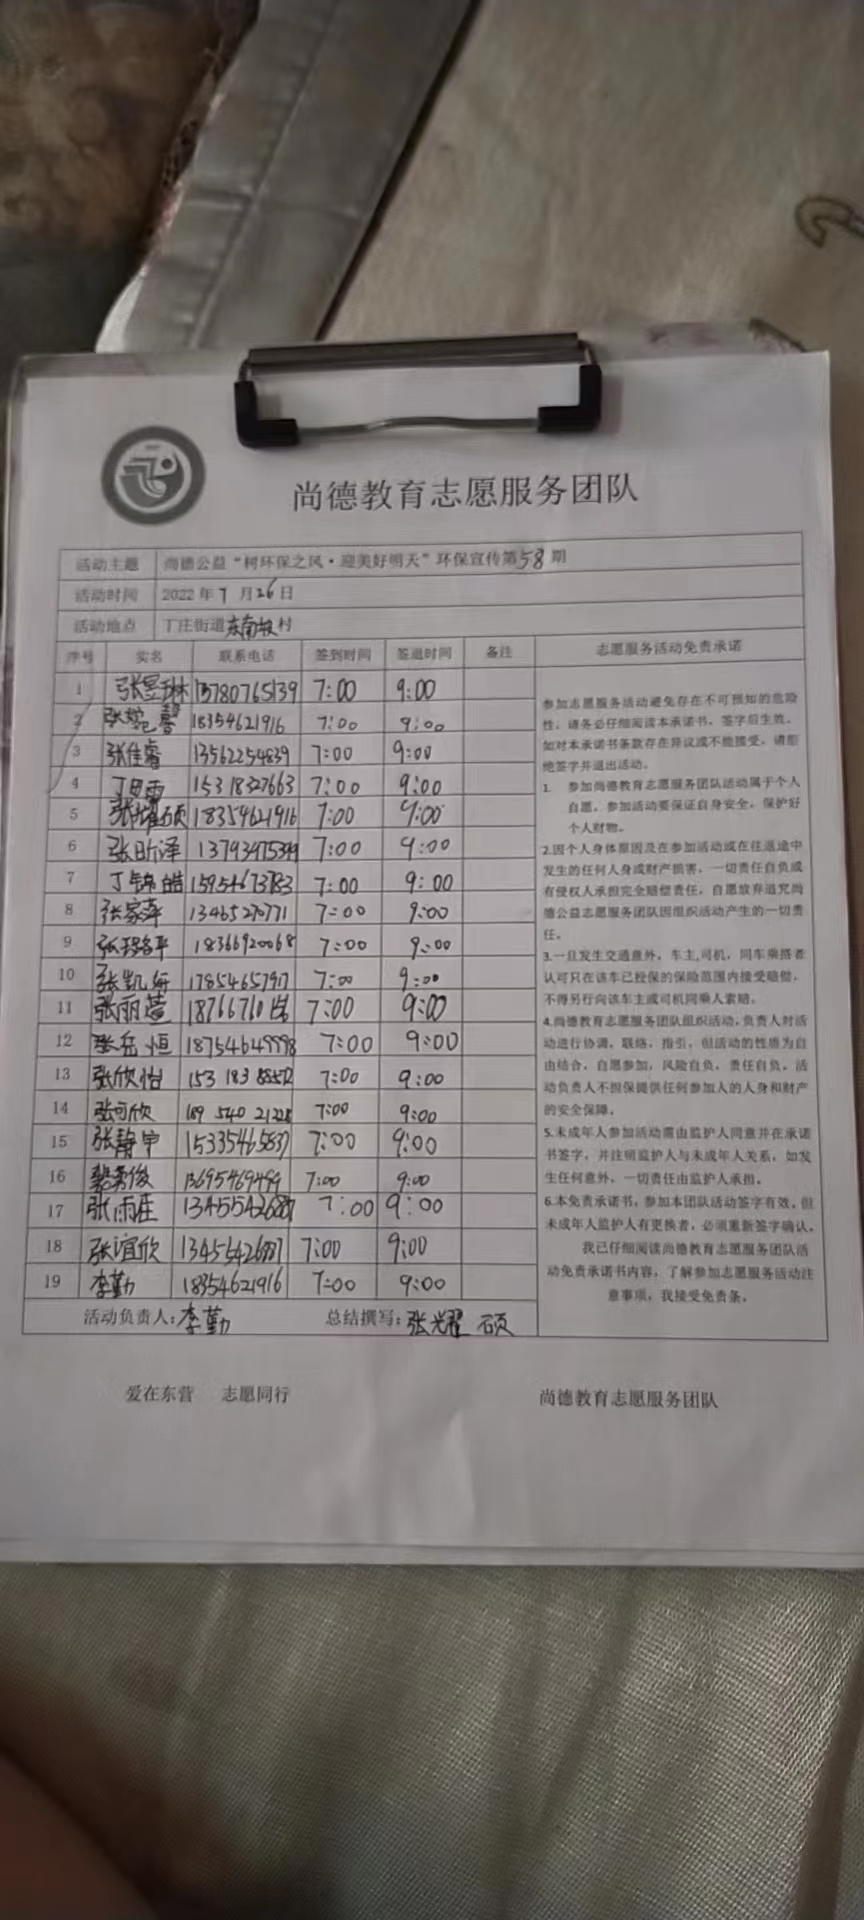 尚德教育志愿服务团队
活动主题 尚德公益“树环保之风·迎美好明天”环保宣传第58期
活动时间 2022年7月26日
活动地点 丁庄街道东南坡村
序号 实名 联系电话 签到时间 签退时间 备注 志愿服务活动免责承诺
1 张昱琳 13780765139 7:00 9:00
2 18354621916 7:00 9:00
3 张佳睿 13562254839 7:00 9:00
4 15318327663 7:00 9:00
5 张耀硕 18354621916 7:00 9:00
6 张昕泽 7:00 9:00
7 丁锦皓 7:00 9:00
8 张家萍 13465270771 7:00 9:00
9 18366920068 7:00 9:00
10 张凯 17854657917 7:00 9:00
11 张丽萱 7:00 9:00
12 张岳恒 18754649998 7:00 9:00
13 张欣怡 7:00 9:00
14 张可欣 7:00 9:00
15 张静宇 15335465837 7:00 9:00
16 13695469494 7:00 9:00
17 7:00 9:00
18 张谊欣 7:00 9:00
19 李勤 18354621916 7:00 9:00
活动负责人:李勤 总结撰写:张光耀 硕
参加志愿服务活动避免存在不可预知的危险
性，请务必仔细阅读本承诺书，签字后生效，
如对本承诺书条款存在异议或不能接受，请拒
绝签字并退出活动。
1. 参加尚德教育志愿服务团队活动属于个人
自愿，参加活动要保证自身安全，保护好
个人财物。
2.因个人身体原因及在参加活动或在往返途中
发生的任何人身或财产损害，一切责任自负或
有侵权人承担完全赔偿责任，自愿放弃追究尚
德公益志愿服务团队因组织活动产生的一切责
任。
3.一旦发生交通意外，车主,司机，同车乘搭者
认可只在该车已投保的保险范围内接受赔偿，
不得另行向该车主或司机同乘人索赔。
4.尚德教育志愿服务团队组织活动，负责人对活
动进行协调、联络，指引，但活动的性质为自
由结合，自愿参加，风险自负，责任自负，活
动负责人不担保提供任何参加人的人身和财产
的安全保障。
5.未成年人参加活动需由监护人同意并在承诺
书签字，并注明监护人与未成年人关系，如发
生任何意外，一切责任由监护人承担。
6.本免责承诺书，参加本团队活动签字有效，但
未成年人监护人有更换者，必须重新签字确认。
我已仔细阅读尚德教育志愿服务团队活
动免责承诺书内容，了解参加志愿服务活动注
意事项，我接受免责条。
爱在东营 志愿同行 尚德教育志愿服务团队